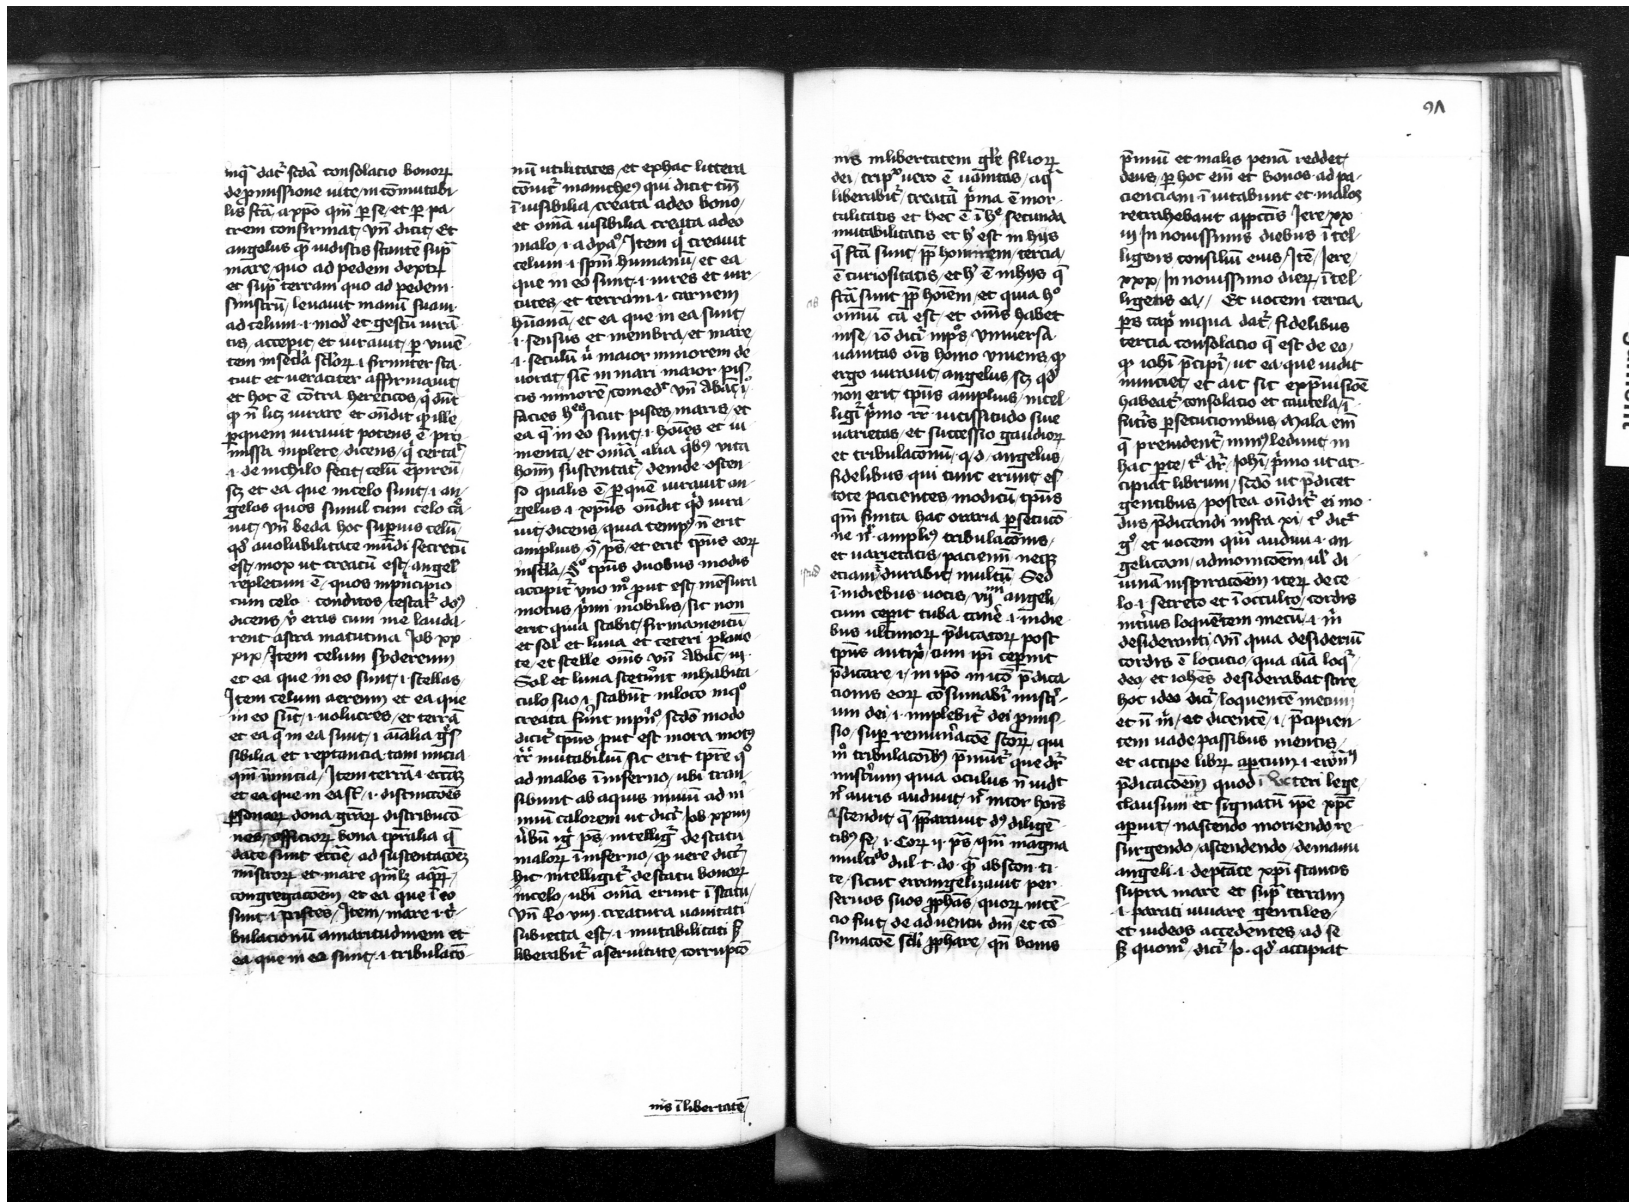 inq̄ dat᷑ scđa consolacio bonoꝝ
de ꝑmissione vite in cōmutabi
lis fcā a xpō qm̄ ꝑ se et ꝑ pa
trem confirmat vn̄ dicit Et
angelus qᷓ vidistis stantē supᷓ
mare quo ad pedem dextꝝ
et supᷓ terram quo ad pedem
sinistrū leuauit manū suam
ad celum .i. mod᷑ et gestū iurā
tis accepit et iurauit ꝑ viuē
tem in secła scłoꝝ .i. firmiter sta
tuit et veraciter affirmauit
et hoc ē cōtra hereticos qͥ dnt̄
ꝙ n̄ licꝫ iurare et on̄dit ꝙ ille
ꝑ quem iurauit potens ē pro
missa inplere dicens qͥ certa᷑
.i. de nichilo fecit celū epireū
scꝫ et ea que in celo sunt .i. an
gelos quos simul cum celo c̄a
uit vn̄ beda hoc supius celū
qđ a volubilitate mūdi secretū
est mox ut creatū est angel᷒
repletum ē quos in pͥncipio
cum celo conditos testat᷑ dn̄s
dicens v̓ eras cum me lauda
rent astra matutina Job xx
xix Item celum sydereum
et ea que in eo sunt .i. stellas
Item celum aereum et ea que
in eo sūt .i. volucres et terrā
et ea q̄ in ea sunt .i. aīalia gᷓs
sibilia et reptancia tam inicia
qm̄ inicia Item terrā .i. eccām
et ea que in ea st̄ .i. distinccōes
ꝑsonaꝝ dona grāꝝ distribucō
nes officioꝝ bona tꝑralia q̄
date sunt ecc̄ie ad sustentacōeꝫ
mistroꝝ et mare qm̄lꝫ aqᷓꝝ
congregacōem et ea que ī eo
sunt .i. pisces Item mare .i. tͥ
bulacionū amaritudinem et
ea que in ea sunt .i. tribulacō
nū utilitates et ex hac littera
cōuīt᷑ manicheꝰ qui dicit tm̄
īuisibilia creata a deo bono
et om̄ia visibilia creata a deo
malo .i. a dyaᵒ Item qͥ creauit
celum .i. spm̄ humanū et ea
que in eo sunt .i. vires et vir
tutes et terram .i. carnem
hūanā et ea que in ea sunt
.i. sensus et membra et mare
.i. seculū vͥ maior minorem de
uorat sic̄ in mari maior pis
cis minorē comed᷑ vn̄ Abac̄ i
facies hoēs sicut pisces maris et
ea q̄ in eo sunt .i. hoīes et iu
menta et om̄ia alia qͥbꝰ vita
hoīm sustentat᷑ deinde osten
so qualis ē ꝑ quē iurauit an
gelus .i. xpūs on̄dit qͥd iura
uit dicens quia tempꝰ n̄ erit
amplius qᷓ ps̄ et erit tp̄us eoꝝ
in scła Sꝫ tp̄us duobus modis
accipit᷑ vno mᵒ put est mēsura
motus pͥmi mobilis sic non
erit quia stabit firmamentū
et sol et luna et ceteri plane
te et stelle om̄s vn̄ Abac̄ iij
Sol et luna steterūt in habita
culo suo .i. stabūt in loco in qᵒ
creata fuīt in pͥnᵒ scđo modo
dicit᷑ tp̄us put est mora motꝰ
rēr mutabiliū sic erit tp̄re qᵒ
ad malos ī inferno vbi tran
sibunt ab aquis niuiū ad ni
miū calorem ut dicit᷑ Job xxiiij
v̓bū igr̄ ps̄ intelligit᷑ de statu
maloꝝ ī inferno ꝙ vere dicit᷑
hic intelligit᷑ de statu bonoꝝ
in celo vbi om̄ia erunt ī statu
Vn̄ Ro viij creatura vanitati
subiecta est .i. mutabilitati sꝫ
liberabit᷑ a seruitute corrupcō
nis ī libertatē
98
nis in libertatem głe filioꝝ
dei tripᷓ vero ē vanitas a qͣ
liberabit᷑ creat᷑a pͥma ē mor
talitatis et hec ē ī hᵒᵉ secunda
mutabilitatis et hͨ est in hijs
q̄ fcā sunt ꝓpt̄ hominem tercia
ē curiositatis et hͨ ē in hijs q̄
fcā sunt ꝓpt̄ hoīem et quia hᵒ
oīniū cā est et om̄is habet
in se iō dicit᷑ in ps̄ Vniuersa
vanitas ois̄ homo viuens ꝙ
ergo iurauit angelus scꝫ qđ
non erit tp̄us amplius intel
ligit᷑ pͥmo rēr vicissitudo siue
varietas et successio gaudioꝝ
et tribulacōnū q. d. angelus
fidelibus qui tunc erunt es
tote pacientes modicū tp̄us
qm̄ finita hac oraria ꝑsecucō
ne nͨ ampliꝰ tribulacōnis
et varietatis paciem̄ neqꝫ
eciam durabit multū Sed
ī in diebus vocis vijᵐⁱ angeli
cum ceꝑit tuba canē .i. in die
bus ultimoꝝ p̄dicatoꝝ post
tp̄us antix̄ cum ip̄i ceꝑint
p̄dicare .i. in ip̄o inicō p̄dica
cionis eoꝝ cōsumabit᷑ mistͥ
um dei .i. inplebit᷑ dei ꝓmis
sio suꝑ remuīacōe scōꝝ qui
in tribulacōibꝰ pͥmūt᷑ que dr̄
mistͥium quia oculus n̄ vidit
nͨ auris audiuit nͨ in cor hoīs
ascendit q̄ p̄parauit dꝰ diligē
tibꝰ se .i. Coꝝ ij ps̄ qm̄ magna
multidᵒ dul. t. do. qᷓ abscon. ti.
te sicut ewangelizauit per
seruos suos ꝓphās quoꝝ intē
cio fuit de aduentu dn̄i et cō
sumacōe scłi ꝓphare qn̄ bonis
pͥmiū et malis penā reddet
deus ꝑ hoc eīm et bonos ad pa
cienciam ī uitabunt et malos
retrahebant a pcc̄is Jere xx
iij In nouissimis diebus ītel
ligetis consiliū eius Itē Jere
xxx In nouissimo dierꝫ ītel
ligetis ea Et vocem tercia
ps̄ capͥ in qua dat᷑ fidelibus
tercia consolacio q̄ est de eo
ꝙ iohī p̄cipit᷑ ut ea que vidit
nunciet et ait sic ex p̄uisiōe
habeat᷑ consolacio et cautela ī
futͥs ꝑsecucionibus Mala eīm
q̄ preuident᷑ minꝰ ledunt in
hac ꝑte tͣ dr̄ Johī pͥmo ut ac
cipiat librum scđo ut p̄dicet
gentibus postea on̄dit᷑ ei mo
dus p̄dicandi infra xi tͦ dicit᷑
gͦ et vocem qm̄ audiui .i. an
gelicam admonicōem ul̄ di
uinā inspiracōem iterꝫ de ce
lo .i. secreto et ī occulto cordis
intͥus loquētem mecū .i. m̄
desideranti vn̄ quia desideriū
cordis ē locucio qua aīa loqͥ᷑
deo et iohēs desiderabat scire
hoc ideo dicit᷑ loquentē mecum
et n̄ m̄ et dicentē .i. p̄cipien
tem vade passibus mentis
et accipe libꝝ aꝑtum .i.
p̄dicacōem quod ī veteri lege
clausum et signatū ip̄e xpc̄
aꝑuit nascendo moriendo re
surgendo ascendendo de manu
angeli .i. de ptāte xpī stantis
supra mare et supᷓ terram
.i. parati iuuare gentiles
et iudeos accedentes ad se
sꝫ quomᵒ dicit᷑ Jo. qđ accipiat